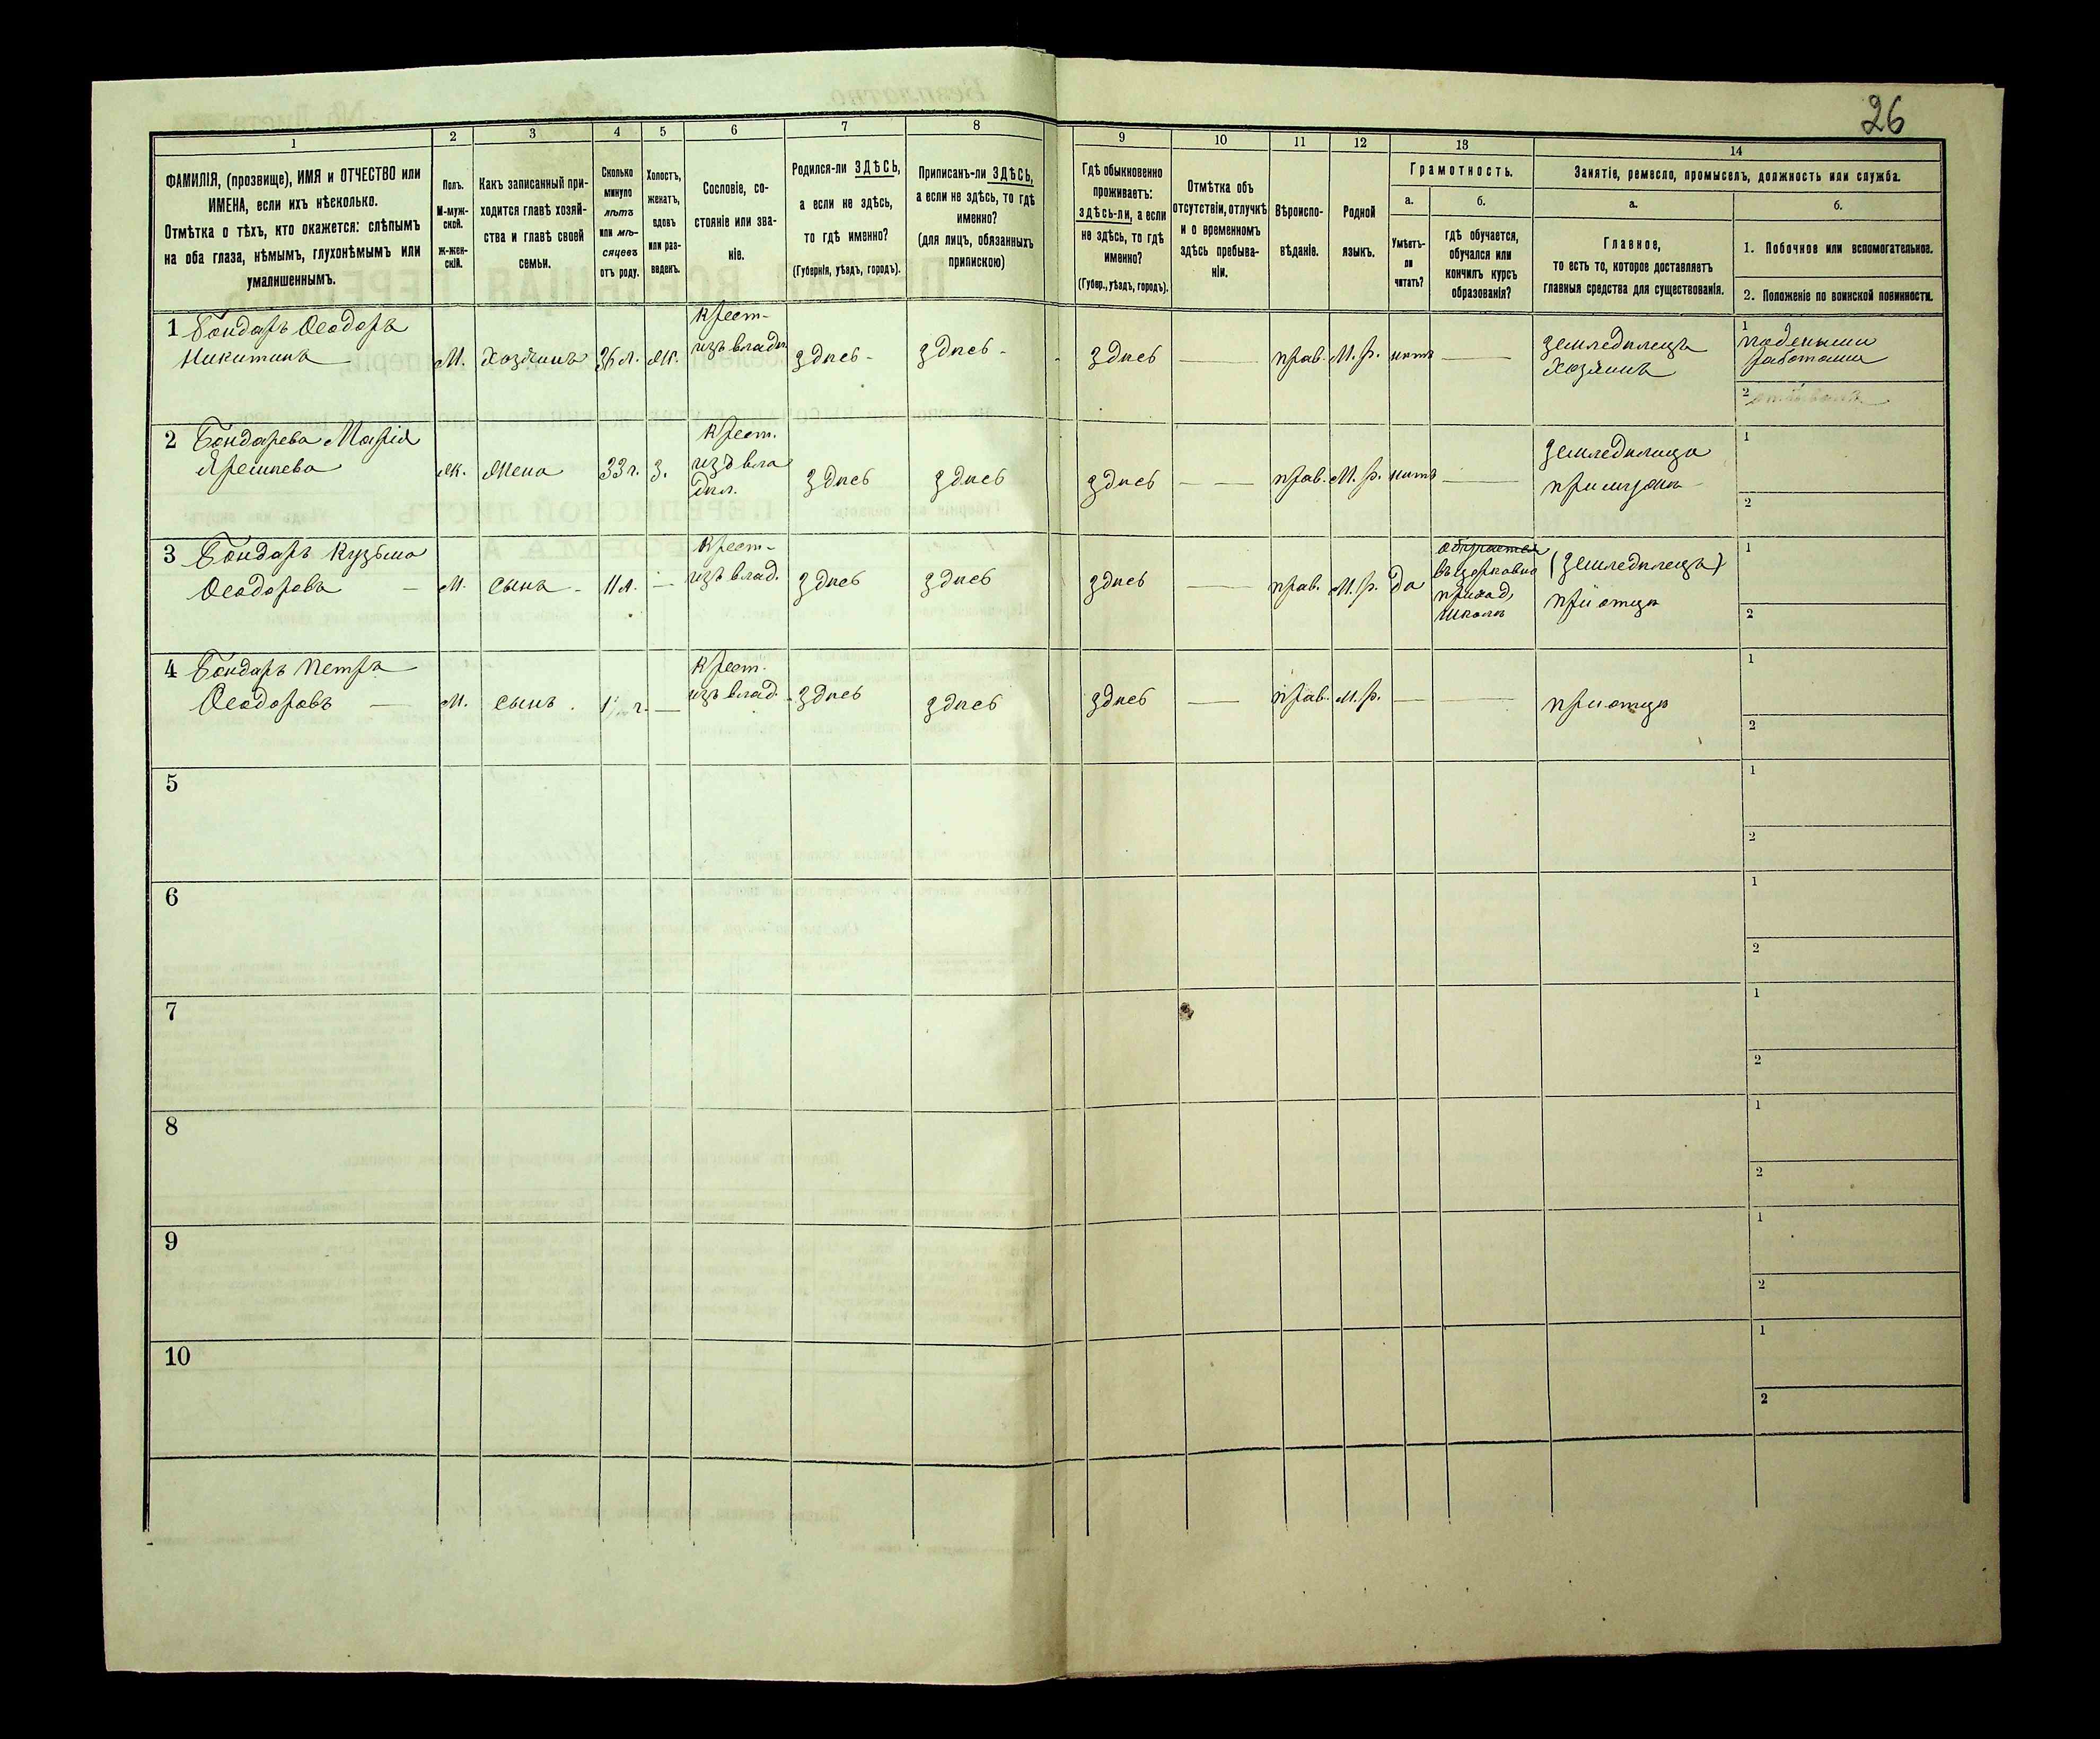 26
1
2
3
4
5
6
7
8
9
10
11
12
13
14
ФАМИЛІЯ, (прозвище), ИМЯ и ОТЧЕСТВО или
ИМЕНА, если ихъ нѣсколько.
Отмѣтка о тѣхъ, кто окажется: слѣпымъ
на оба глаза, нѣмымъ, глухонѣмымъ или
умалишеннымъ.
Полъ.
М-муж-
ской.
Ж-жен-
скій.
Какъ записанный при-
ходится главѣ хозяй-
ства и главѣ своей
семьи.
Сколько
минуло
лѣтъ
или мѣ-
сяцевъ
отъ роду.
Холостъ,
женатъ,
вдовъ
или раз-
веденъ.
Сословіе, со-
стояніе или зва-
ніе.
Родился-ли ЗДѢСЬ,
а если не здѣсь,
то гдѣ именно?
(Губернія, уѣздъ, городъ).
Приписанъ-ли ЗДѢСЬ,
а если не здѣсь, то гдѣ
именно?
(для лицъ, обязанныхъ
припискою)
Гдѣ обыкновенно
проживаетъ:
здѣсь-ли, а если
не здѣсь, то гдѣ
именно?
(Губер., уѣздъ, городъ).
Отмѣтка объ
отсутствіи, отлучкѣ
и о временномъ
здѣсь пребыва-
ніи.
Вѣроиспо-
вѣданіе.
Родной
языкъ.
Грамотность.
а.
Умѣетъ-
ли
читать?
б.
гдѣ обучается,
обучался или
кончилъ курсъ
образованія?
Занятіе, ремесло, промыселъ, должность или служба.
а.
Главное,
то есть то, которое доставляетъ
главныя средства для существованія.
б.
1. Побочное или вспомогательное.
2. Положеніе по воинской повинности.
1 Бондарь Ѳеодоръ
Никитинъ
М.
Хозяинъ
36 л.
Ж.
Крест-
изъ владѣл.
здѣсь
здѣсь
здѣсь
прав.
М. р.
нѣтъ
земледѣлецъ
хозяинъ
1
поденныи
работами
2
2 Бондарева Марія
Ж.
Жена
33 г.
З.
Крест.
изъ вла
дѣл.
здѣсь
здѣсь
здѣсь
прав.
М. р.
нѣтъ
земледѣлица
при мужѣ
1
2
3 Бондарь Кузьма
Ѳеодоровъ
М.
Сынъ
11 л.
Крест-
изъ влад.
здѣсь
здѣсь
здѣсь
прав.
М. р.
да
обучается
въ церковно
приход.
школѣ
(земледѣлецъ)
при отцѣ
1
2
4 Бондарь Петръ
Ѳеодоровъ
М.
сынъ
Крест.
изъ влад.
здѣсь
здѣсь
здѣсь
прав.
М. р.
при отцѣ
1
2
5
1
2
6
1
2
7
1
2
8
1
2
9
1
2
10
1
2